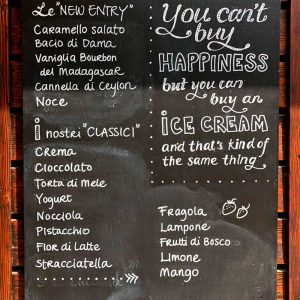 Le "NEW ENTRY"
Caramello salato
Bacio di Dama
Vaniglia Bourbon
del Madagascar
Cannella di Ceylon
Noce
i nostri "CLASSICI"
Crema
Cioccolato
Torta di mele
Yogurt
Nocciola
Pistacchio
Fior di Latte
Stracciatella
You can't
buy
HAPPINESS
but you can
buy an
iCE CREAM
and that's kind of
the same thing
Fragola
Lampone
Frutti di Bosco
Limone
Mango